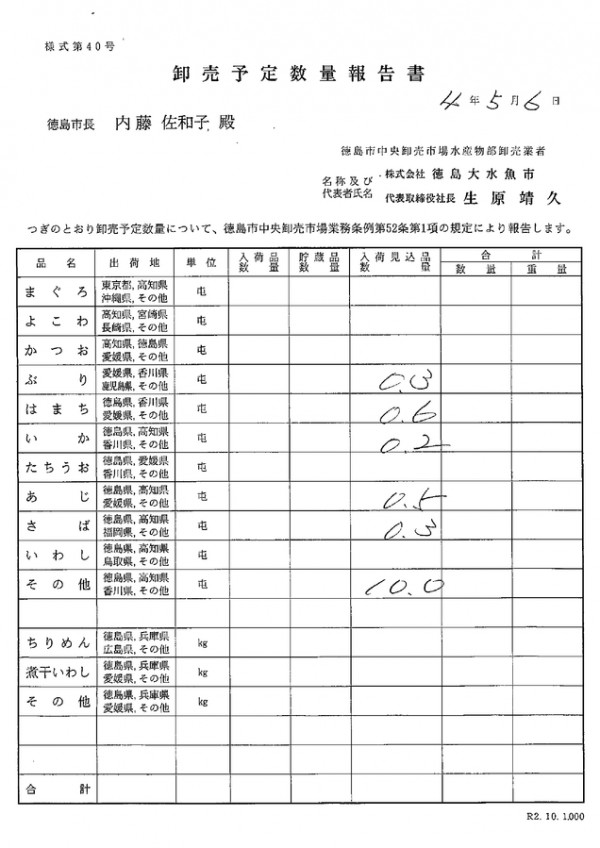 様式第40号
卸売予定数量報告書
4年5月6日
徳島市長 内藤 佐和子 殿
徳島市中央卸売市場水産物部卸売業者
名称及び 株式会社 徳島大水魚市
代表者氏名 代表取締役社長 生原靖久
つぎのとおり卸売予定数量について、徳島市中央卸売市場業務条例第52条第1項の規定により報告します。
品名 出荷地 単位 入荷品数量 貯蔵品数量 入荷見込品数量 合計
数量 重量
まぐろ 東京都,高知県 屯
沖縄県,その他
よこわ 高知県,宮崎県 屯
長崎県,その他
かつお 高知県,徳島県 屯
愛媛県,その他
ぶり 愛媛県,香川県 屯 0.3
鹿児島県,その他
はまち 徳島県,香川県 屯 0.6
愛媛県,その他
いか 徳島県,高知県 屯 0.2
香川県,その他
たちうお 徳島県,愛媛県 屯
香川県,その他
あじ 徳島県,高知県 屯 0.5
愛媛県,その他
さば 徳島県,高知県 屯 0.3
福岡県,その他
いわし 徳島県,高知県 屯
鳥取県,その他
その他 徳島県,高知県 屯 10.0
香川県,その他
ちりめん 徳島県,兵庫県 kg
広島県,その他
煮干いわし 徳島県,兵庫県 kg
愛媛県,その他
その他 徳島県,兵庫県 kg
愛媛県,その他
合計
R2.10.1.000